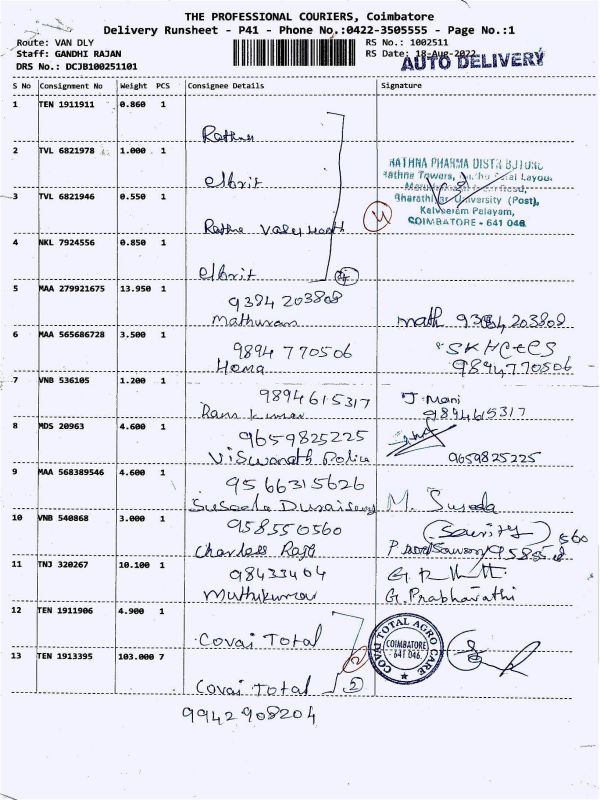 THE PROFESSIONAL COURIERS, Coimbatore
Delivery Runsheet - P41 - Phone No.:0422-3505555 - Page No.:1
Route: VAN DLY RS No.: 1002511
Staff: GANDHI RAJAN RS Date: 18-Aug-2022
AUTO DELIVERY
DRS No.: DCJB100251101
S No Consignment No Weight PCS Consignee Details Signature
1 TEN 1911911 0.860 1
Rathna
2 TVL 6821978 1.000 1
elbrit
RATHNA PHARMA DISTRIBUTORS
Rathna Towers, Layout
Road,
Bharathiar University (Post),
Kalveeram Palayam,
COIMBATORE - 641 046
3 TVL 6821946 0.550 1
Rathna
4
4 NKL 7924556 0.850 1
elbrit 4
5 MAA 279921675 13.950 1
9384 203808
Mathuram math 9384203808
6 MAA 565686728 3.500 1
9894 770506 SKHC&CS
Hema 9894770506
7 VNB 536105 1.200 1
9894615317 J. Mani
Ram kumar 9894615317
8 MDS 20963 4.600 1
9659825225
Viswanath Police 9659825225
9 MAA 568389546 4.600 1
9566315626
Suseela Duraisamy M. Suseela
10 VNB 540868 3.000 1
958550560
Charless Raja
11 TNJ 320267 10.100 1
98433404
Muthukumar G. Prabhavathi
12 TEN 1911906 4.900 1
Covai Total
COVAI TOTAL AGRO CARE
COIMBATORE
641 046
13 TEN 1913395 103.000 7
2
Covai Total 2
9942908204